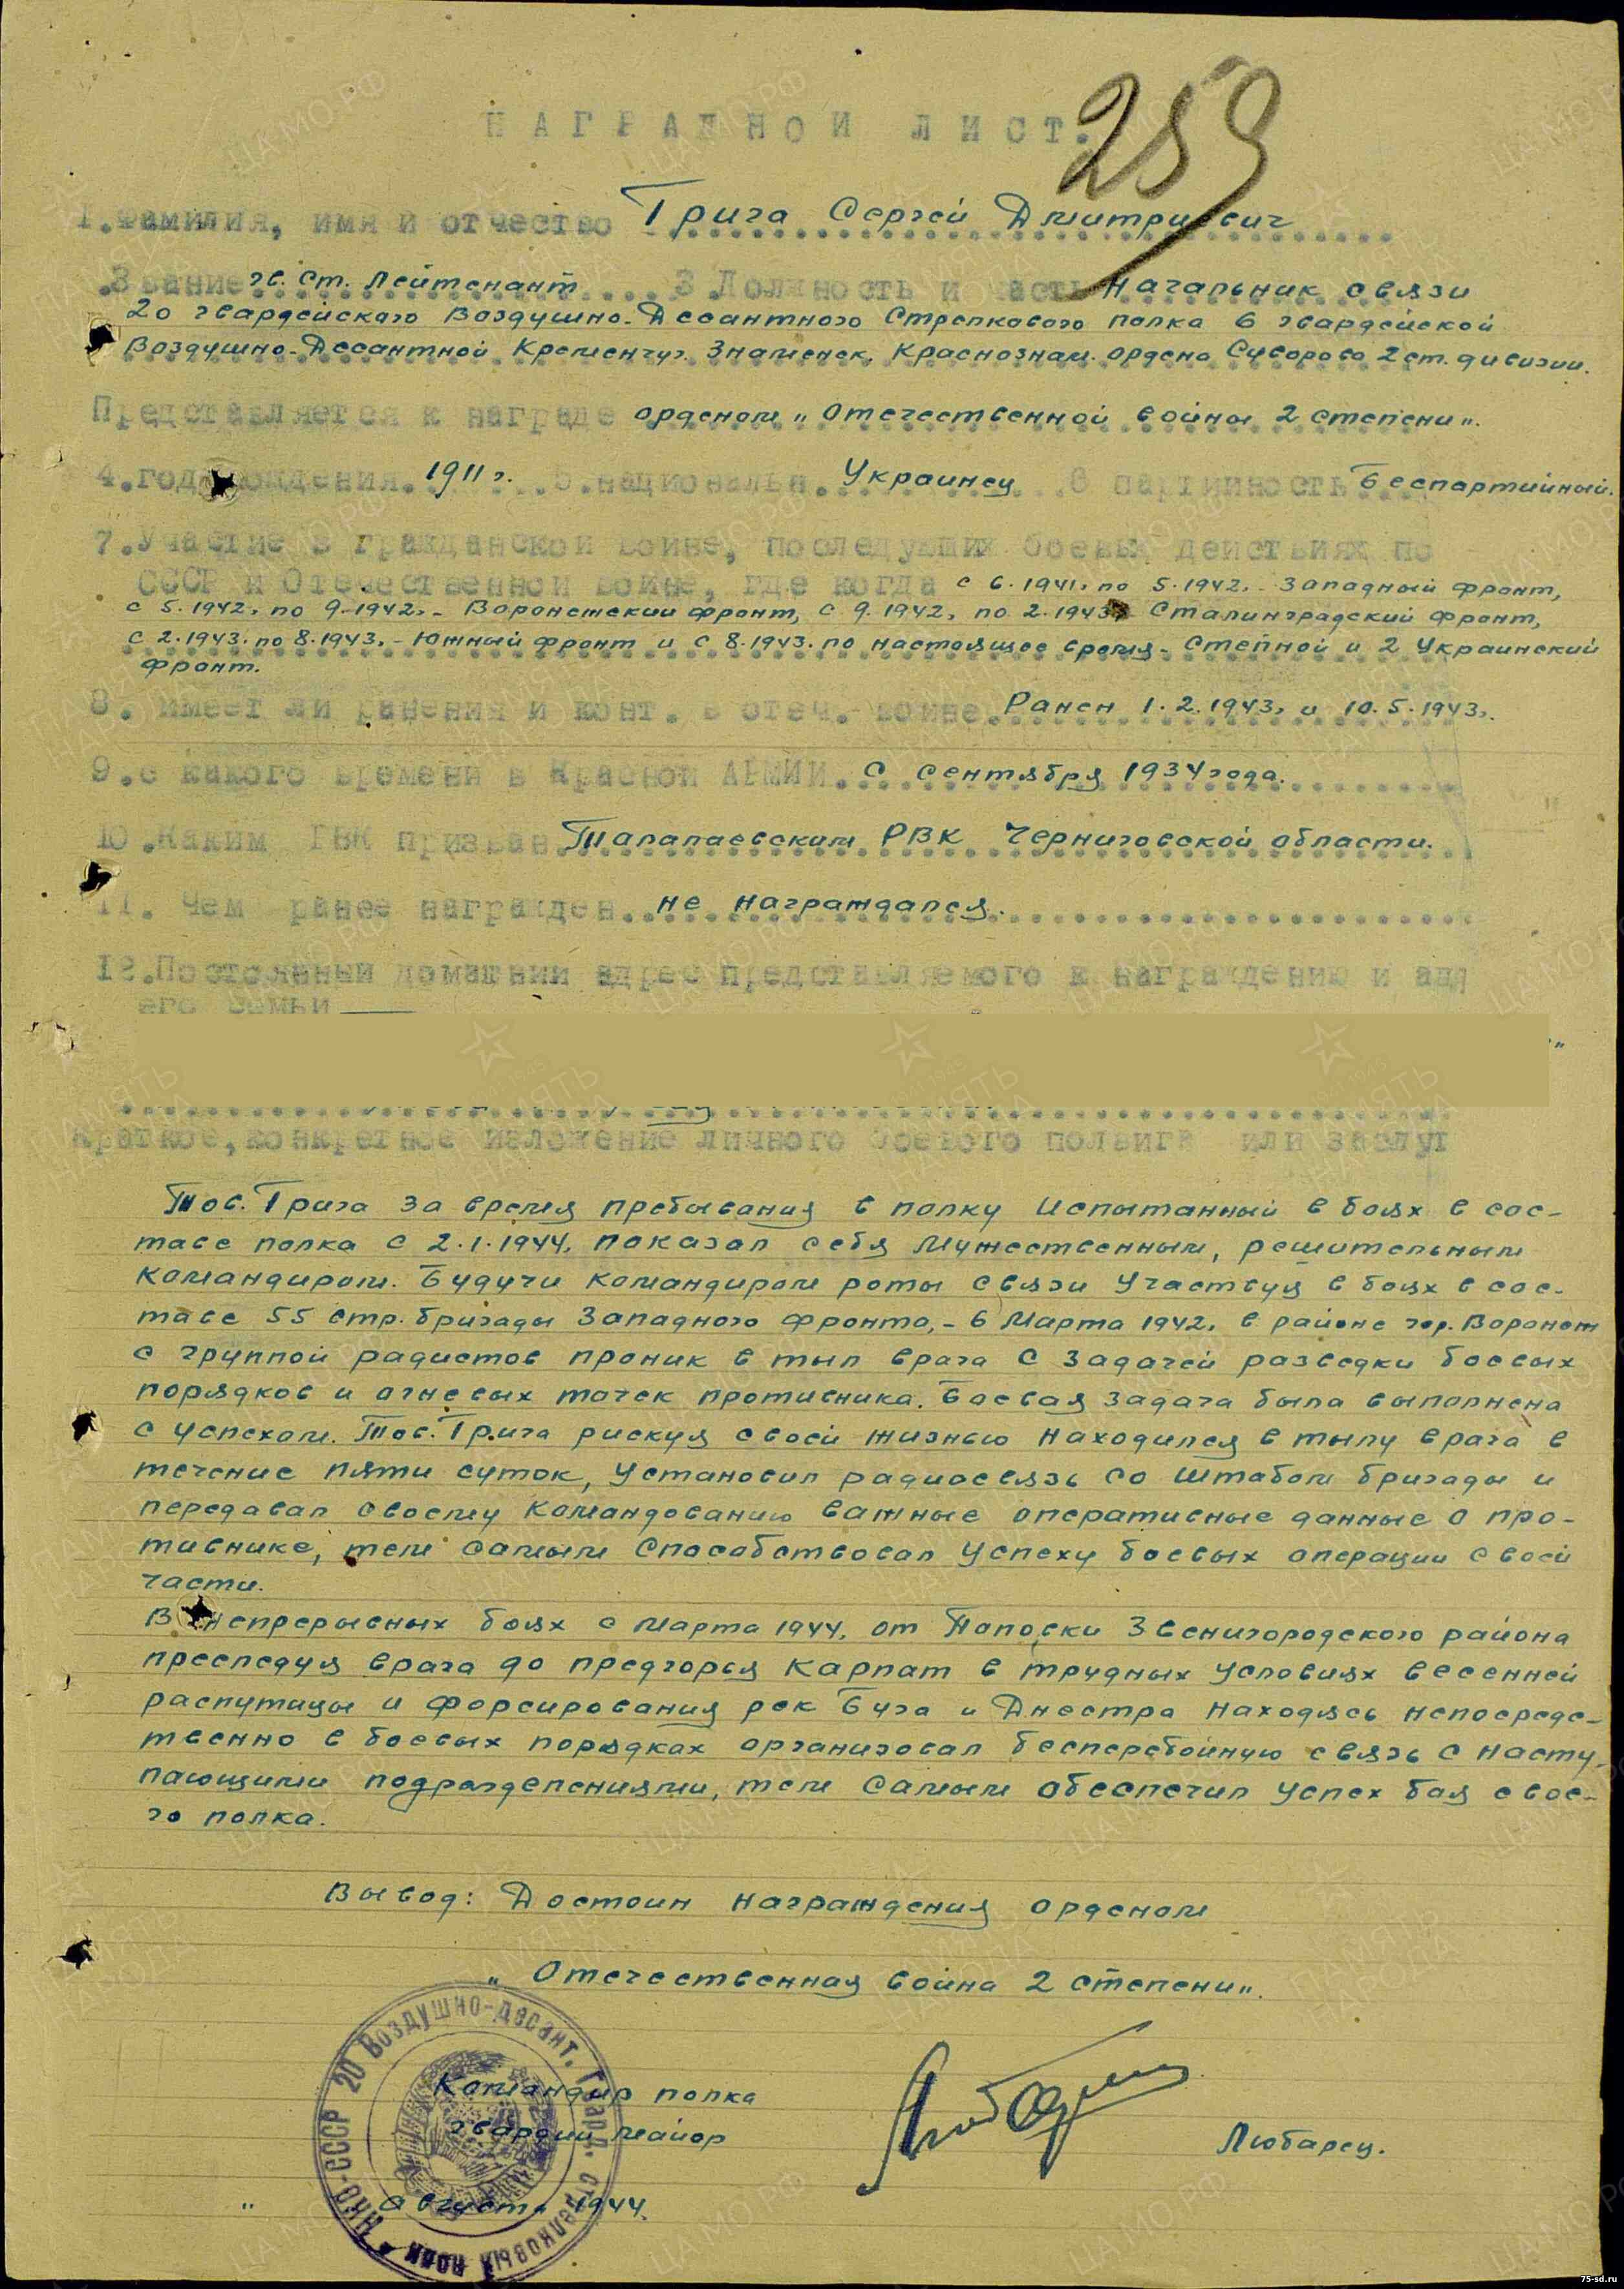 259
НАГРАДНОЙ ЛИСТ.
1. Фамилия, имя и отчество Грига Сергей Дмитриевич
.Звание гв. ст. Лейтенант 3 Должность и часть Начальник связи
20 гвардейского Воздушно-Десантного Стрелкового полка 6 гвардейской
Воздушно-Десантной Кременчуг. Знаменск. Краснознам. ордена Суворова 2 ст. дивизии.
Представляется к награде орденом „Отечественной войны 2 степени".
4. год рождения. 1911 г. 5. национальн. Украинец 6 партийность Беспартийный.
7. Участие в гражданской войне, последующих боевых действиях по
СССР и Отечественной войне, где когда с 6.1941. по 5.1942. - Западный фронт,
с 5.1942. по 9.1942. - Воронежский фронт, с 9.1942. по 2.1943. Сталинградский фронт,
с 2.1943. по 8.1943. - Южный фронт и с 8.1943. по настоящее время - Степной и 2 Украинский
фронт.
8. имеет ли ранения и конт. в отеч. войне. Ранен 1.2.1943. и 10.5.1943.
9. с какого времени в Красной АРМИИ. С сентября 1934 года.
10. Каким РВК призван Талалаевским РВК Черниговской области.
11. Чем ранее награжден. не награждался.
12. Постоянный домашний адрес представляемого к награждению и адр
его семьи
Краткое, конкретное изложение личного боевого подвига или заслуг
Тов. Грига за время пребывания в полку Испытанный в боях в сос-
таве полка с 2.1.1944. показал себя Мужественным, решительным
Командиром. Будучи командиром роты связи Участвуя в боях в сос-
таве 55 стр. бригады Западного фронта, - 6 Марта 1942. в районе гор. Воронеж
с группой радистов проник в тыл врага с задачей разведки боевых
порядков и огневых точек противника. Боевая задача была выполнена
с успехом. Тов. Грига рискуя своей жизнью находился в тылу врага в
течение пяти суток, Установил радиосвязь со штабом бригады и
передавал своему командованию важные оперативные данные о про-
тивнике, тем самым Способствовал Успеху боевых операции своей
части.
В непрерывных боях с Марта 1944. от Звенигородского района
преследуя врага до предгорья Карпат в трудных Условиях весенней
распутицы и форсирования рек Буга и Днестра находясь непосредс-
твенно в боевых порядках организовал бесперебойную связь с насту-
пающими подразделениями, тем самым обеспечил Успех боя свое-
го полка.
Вывод: Достоин награждения орденом
„Отечественная война 2 степени".
Командир полка
гвардии майор
Любарец.
" августа 1944.
НКО-СССР 20 Воздушно-десант. Гвард. стрелковый полк
75-sd.ru